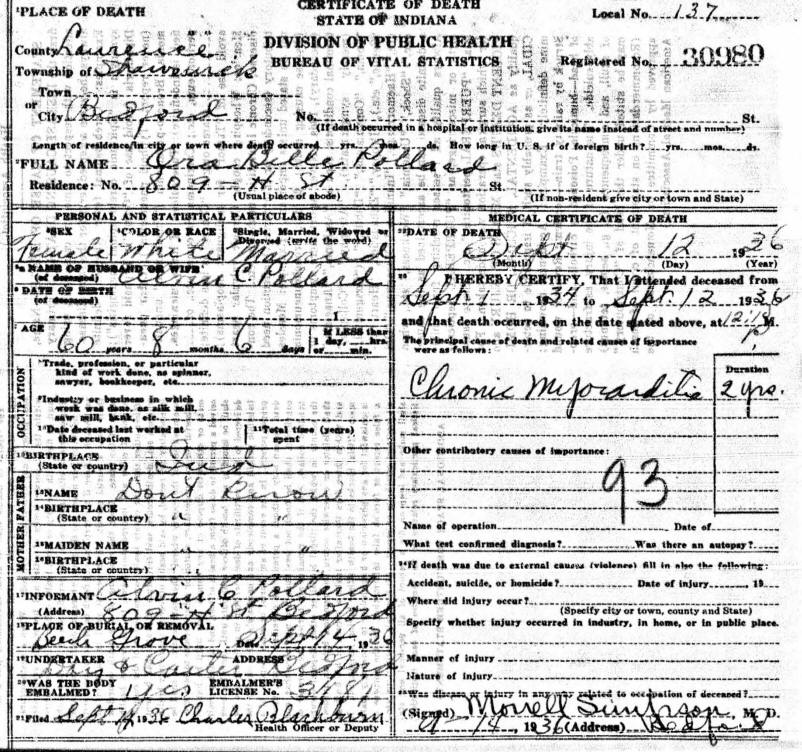 ¹PLACE OF DEATH
CERTIFICATE OF DEATH
STATE OF INDIANA
DIVISION OF PUBLIC HEALTH
BUREAU OF VITAL STATISTICS
Local No. 137
Registered No. 30980
County Lawrence
Township of Shawswick
Town
or
City Bedford No. St.
(If death occurred in a hospital or institution, give its name instead of street and number)
Length of residence in city or town where death occurred yrs. mos. ds. How long in U. S. if of foreign birth? yrs. mos. ds.
²FULL NAME Ora Belle Pollard
Residence: No. 809 - H St St.
(Usual place of abode) (If non-resident give city or town and State)
PERSONAL AND STATISTICAL PARTICULARS
³SEX Female
⁴COLOR OR RACE White
⁵Single, Married, Widowed or Divorced (write the word) Married
⁵ᵃ NAME OF HUSBAND OR WIFE (of deceased) Alvin C Pollard
⁶ DATE OF BIRTH
(of deceased)
⁷ AGE 60 years 8 months 6 days
If LESS than 1 day, hrs. or min.
OCCUPATION
⁸Trade, profession, or particular
kind of work done, as spinner,
sawyer, bookkeeper, etc.
⁹Industry or business in which
work was done, as silk mill,
saw mill, bank, etc.
¹⁰Date deceased last worked at
this occupation
¹¹Total time (years)
spent
¹²BIRTHPLACE
(State or country) Ind
FATHER
¹³NAME Dont Know
¹⁴BIRTHPLACE
(State or country) " "
MOTHER
¹⁵MAIDEN NAME " "
¹⁶BIRTHPLACE
(State or country) " "
¹⁷INFORMANT Alvin C Pollard
(Address) 809 - H St Bedford
¹⁸PLACE OF BURIAL OR REMOVAL
Beech Grove Date Sept 14 1936
¹⁹UNDERTAKER ADDRESS
& Carter Bedford
²⁰WAS THE BODY
EMBALMED? yes
EMBALMER'S
LICENSE No.
²¹Filed Sept 14 1936 Charles
Health Officer or Deputy
MEDICAL CERTIFICATE OF DEATH
²²DATE OF DEATH
Sept 12 1936
(Month) (Day) (Year)
²³ I HEREBY CERTIFY, That I attended deceased from
Sept 1 1934 to Sept. 12 1936
and that death occurred, on the date stated above, at 12:15 P M.
The principal cause of death and related causes of importance
were as follows:
Duration
Chronic Myocarditis 2 yrs.
Other contributory causes of importance:
93
Name of operation Date of
What test confirmed diagnosis? Was there an autopsy?
²⁴If death was due to external causes (violence) fill in also the following:
Accident, suicide, or homicide? Date of injury 19
Where did injury occur?
(Specify city or town, county and State)
Specify whether injury occurred in industry, in home, or in public place.
Manner of injury
Nature of injury
²⁵Was disease or injury in any way related to occupation of deceased?
(Signed) Morrell Simpson, M. D.
9-14, 1936 (Address) Bedford